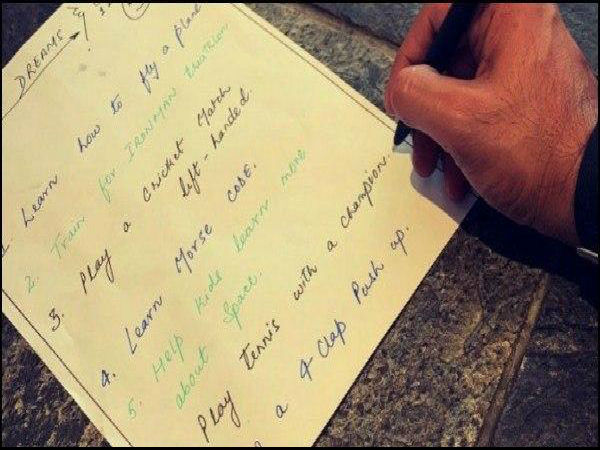 DREAMS
1 Learn how to fly a plane
2. Train for IRONMAN triathlon
3. Play a cricket Match
left-handed.
4. Learn Morse CODE.
5. Help Kids learn more
about Space.
Play tennis with a champion.
a 4 Clap Push up.